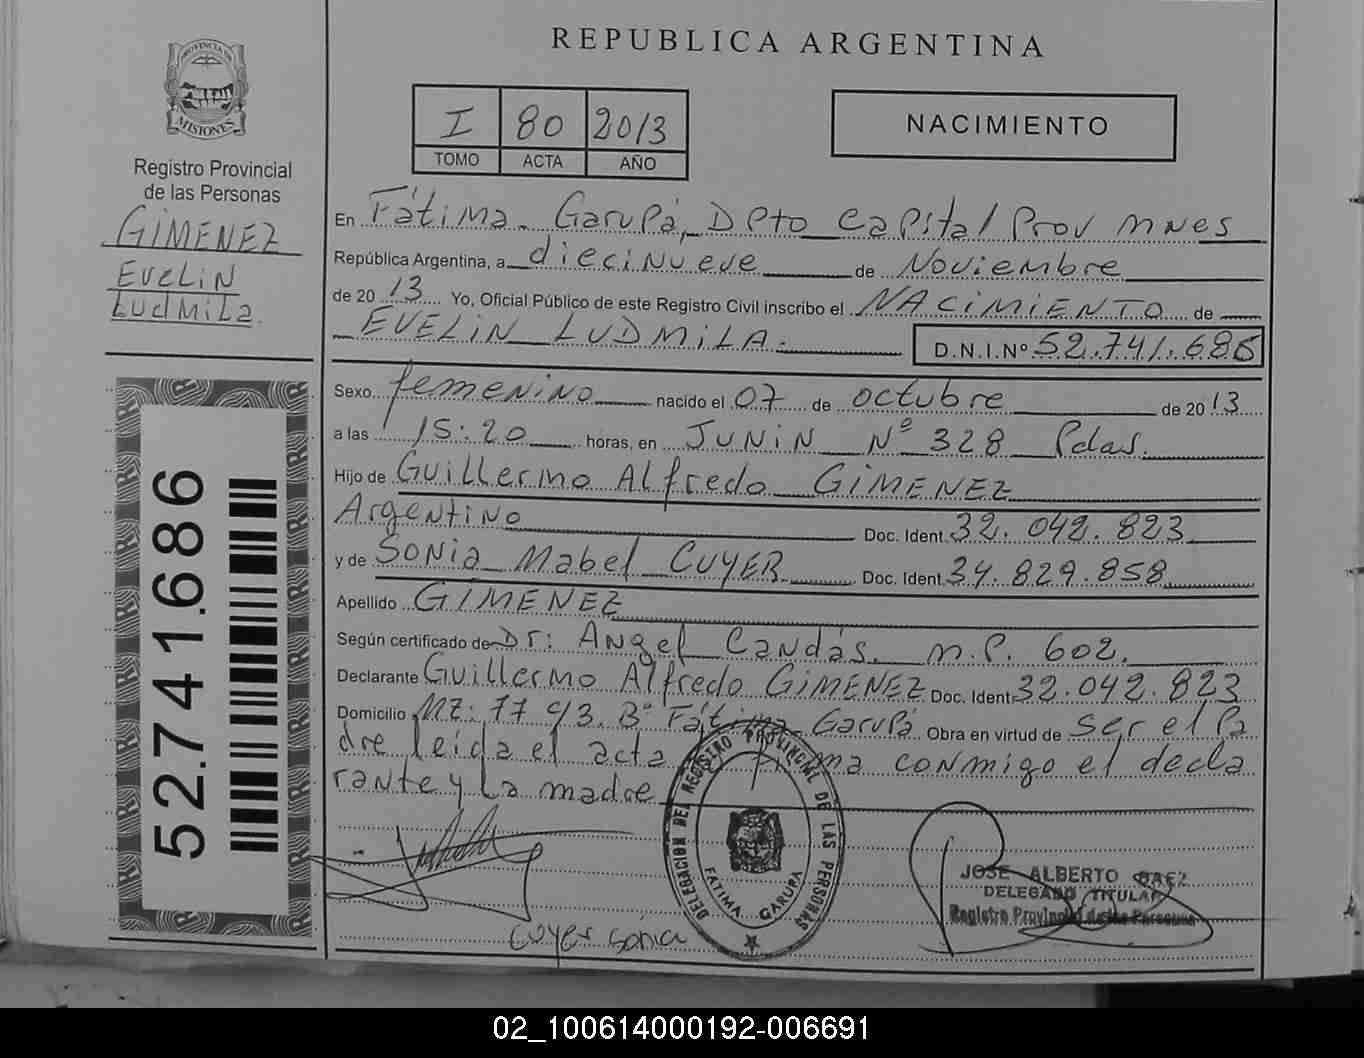 REPUBLICA ARGENTINA
PROVINCIA DE
MISIONES
Registro Provincial
de las Personas
GIMENEZ
EveLiN
LudMiLa.
52.741.686
I 80 2013
TOMO ACTA AÑO
NACIMIENTO
En Fátima. Garupá, Dpto Capital Prov Mnes
República Argentina, a diecinueve de Noviembre
de 20 13 Yo, Oficial Público de este Registro Civil inscribo el NACIMIENTO de
EVELIN LUDMILA. D.N.I.Nº 52.741.686
Sexo femenino nacido el 07 de octubre de 20 13
a las 15:20 horas, en JUNIN Nº 328 Pdas.
Hijo de Guillermo Alfredo GIMENEZ
Argentino Doc. Ident. 32.042.823
y de Sonia Mabel CUYER Doc. Ident. 34.829.858
Apellido GIMENEZ
Según certificado de Dr: Angel Candás. M.P. 602.
Declarante Guillermo Alfredo GIMENEZ Doc. Ident. 32.042.823
Domicilio MZ: 77 c/3. Bº Fátima Garupá Obra en virtud de ser el Pa
dre leida el acta firma conmigo el decla
rante y La madre
DELEGACION DEL REGISTRO PROVINCIAL DE LAS PERSONAS
FATIMA GARUPA
Cuyer Sonia
JOSE ALBERTO BAEZ
DELEGADO TITULAR
Registro Provincial de las Personas
02_100614000192-006691